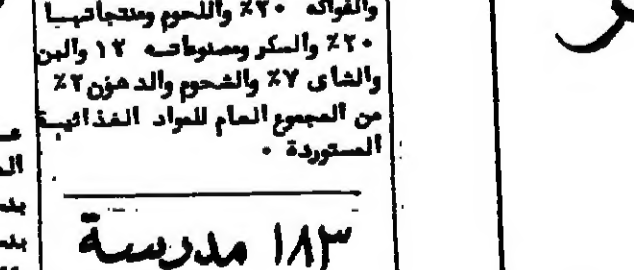 والفواكه ٢٠٪ واللحوم ومنتجاتهـا
٢٠٪ والسكر ومصنوعاتـه ١٢ والبن
والشاى ٧٪ والشحوم والدهون ٢٪
من المجموع العام للمواد الغذائيـة
المستوردة ٠
١٨٣ مدرسة